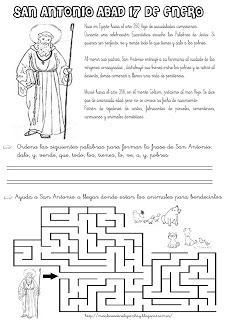 SAN ANTONIO ABAD 17 DE ENERO
Nació en Egipto hacia el año 250, hijo de acaudalados campesinos.
Durante una celebración Eucarística escuchó las Palabras de Jesús: "Si
quieres ser perfecto, ve y vende todo lo que tienes y dalo a los pobres".
Al morir sus padres, San Antonio entregó a su hermana al cuidado de las
vírgenes consagradas, distribuyó sus bienes entre los pobres y se retiró al
desierto, donde comenzó a llevar una vida de penitencia.
Murió hacia el año 356, en el monte Colzim, próximo al mar Rojo. Se dice
que de avanzada edad pero no se conoce su fecha de nacimiento.
Patrón de tejedores de cestos, fabricantes de pinceles, cementerios,
carniceros y animales domésticos.
Ordena las siguientes palabras para formar la frase de San Antonio:
dalo, y, vende, que, todo, los, tienes, lo, ve, a, y, pobres
Ayuda a San Antonio a llegar donde están los animales para bendecirlos